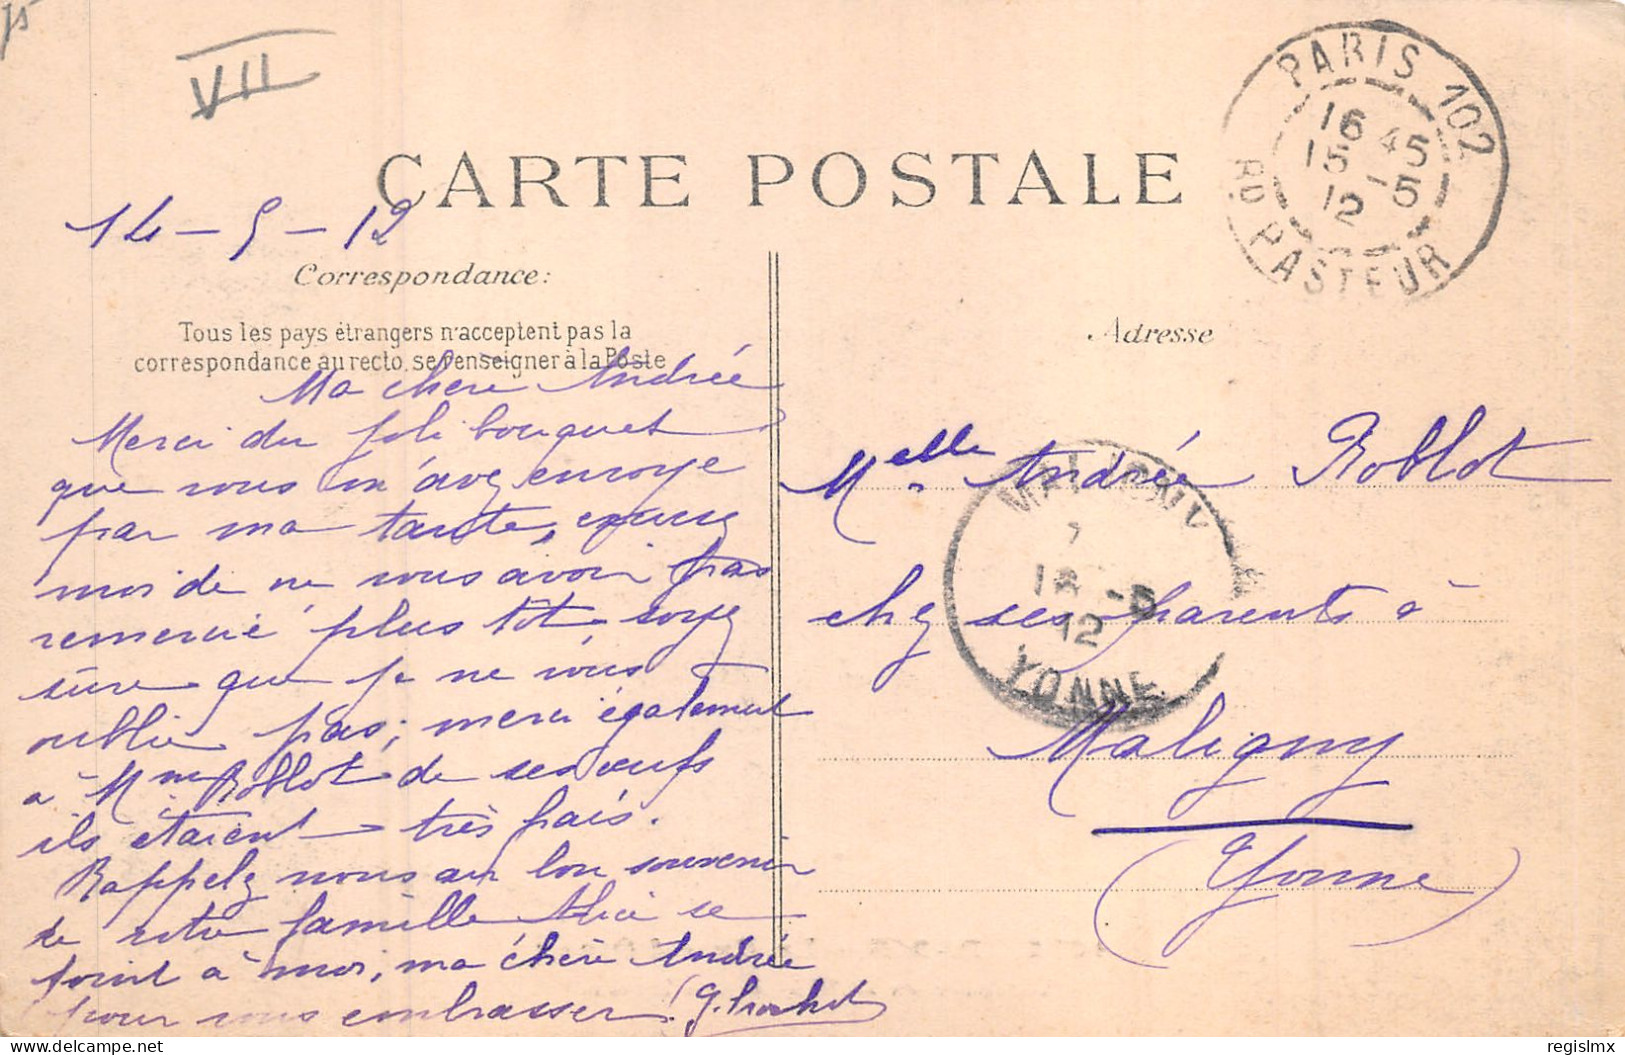 75
VII
PARIS 102
16 45
15 -5
12
RD PASTEUR
CARTE POSTALE
14 - 5 - 12
Correspondance:
Tous les pays étrangers n'acceptent pas la
correspondance au recto, se renseigner à la Poste
Adresse
Ma chère Andrée
Merci du joli bouquet
que vous m'avez envoyé
par ma tante, excusez
moi de ne vous avoir pas
remercié plus tôt, soyez
sûre que je ne vous
oublie pas; merci également
à Mme Roblot de ses œufs
ils étaient très frais.
Rappelez nous au bon souvenir
de votre famille Alice se
joint à moi, ma chère Andrée
pour vous embrasser!
Melle Andrée Roblot
chez ses parents à
Maligny
(Yonne)
MALIGNY
7
16 -5
12
YONNE
www.delcampe.net
regislmx